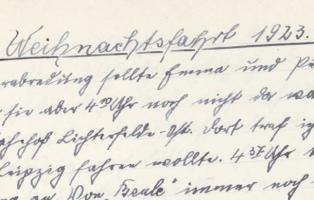 Weihnachtsfahrt 1923.
rabredung sollte Emma und
sie aber 4⁰⁰ Uhr noch nicht da
ahnhof Lichterfelde-Ost. Dort traf
eipzig fahren wollte. 4³⁷ Uhr
Von „Beule“ immer noch